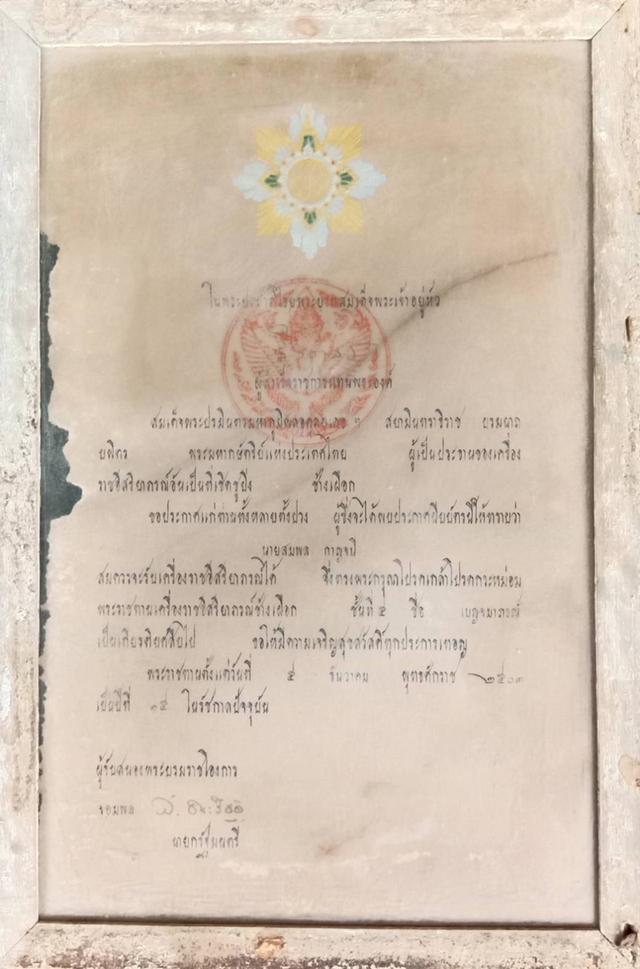 ในพระปรมาภิไธยพระบาทสมเด็จพระเจ้าอยู่หัว
ผู้สำเร็จราชการแทนพระองค์
สมเด็จพระปรมินทรมหาภูมิพลอดุลยเดช ฯ สยามินทราธิราช บรมนาถ
บพิตร พระมหากษัตริย์แห่งประเทศไทย ผู้เป็นประธานของเครื่อง
ราชอิสริยาภรณ์อันเป็นที่เชิดชูยิ่ง ช้างเผือก
ขอประกาศแก่ท่านทั้งหลายทั้งปวง ผู้ซึ่งจะได้พบประกาศนียบัตรนี้ให้ทราบว่า
นายสมพล
สมควรจะรับเครื่องราชอิสริยาภรณ์ได้ จึ่งทรงพระกรุณาโปรดเกล้าโปรดกระหม่อม
พระราชทานเครื่องราชอิสริยาภรณ์ช้างเผือก ชั้นที่ ๕ ชื่อ เบญจมาภรณ์
เป็นเกียรติยศสืบไป ขอให้มีความเจริญสุขสวัสดิ์ทุกประการเทอญ
พระราชทานตั้งแต่วันที่ ๕ ธันวาคม พุทธศักราช ๒๕๐๓
เป็นปีที่ ๑๕ ในรัชกาลปัจจุบัน
ผู้รับสนองพระบรมราชโองการ
จอมพล ส. ธนะรัชต์
นายกรัฐมนตรี